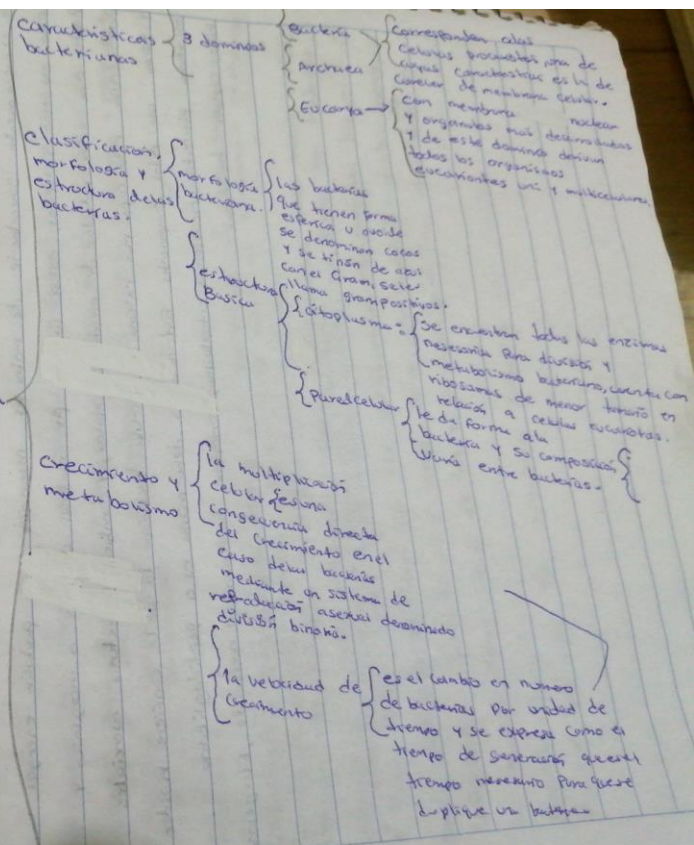 características
bacterianas
3 dominios
Bacteria
Archaea
corresponden a las
células procariotas, una de
cuyas características es la de
carecer de membrana celular.
Eucarya → con membrana nuclear
y organelos más desarrollados
y de este dominio derivan
todos los organismos
eucariontes uni y multicelulares
Clasificación,
morfología y
estructura de las
bacterias.
morfología
bacteriana.
las bacterias
que tienen forma
esférica u ovoide
se denominan cocos
y se tiñen de azul
con el Gram, se les
llama grampositivos.
estructura
Basica
citoplasma =
se encuentran todas las enzimas
necesarias para división y
metabolismo bacteriano, cuenta con
ribosomas de menor tamaño en
relación a celulas eucariotas.
pared celular
le da forma a la
bacteria y su composición
varía entre bacterias.
crecimiento y
metabolismo
la multiplicación
celular es una
consecuencia directa
del crecimiento en el
caso de las bacterias
mediante un sistema de
reproducción asexual denominado
división binaria.
la velocidad de
crecimiento
es el cambio en numero
de bacterias por unidad de
tiempo y se expresa como el
tiempo de generación que es el
tiempo necesario para que se
duplique